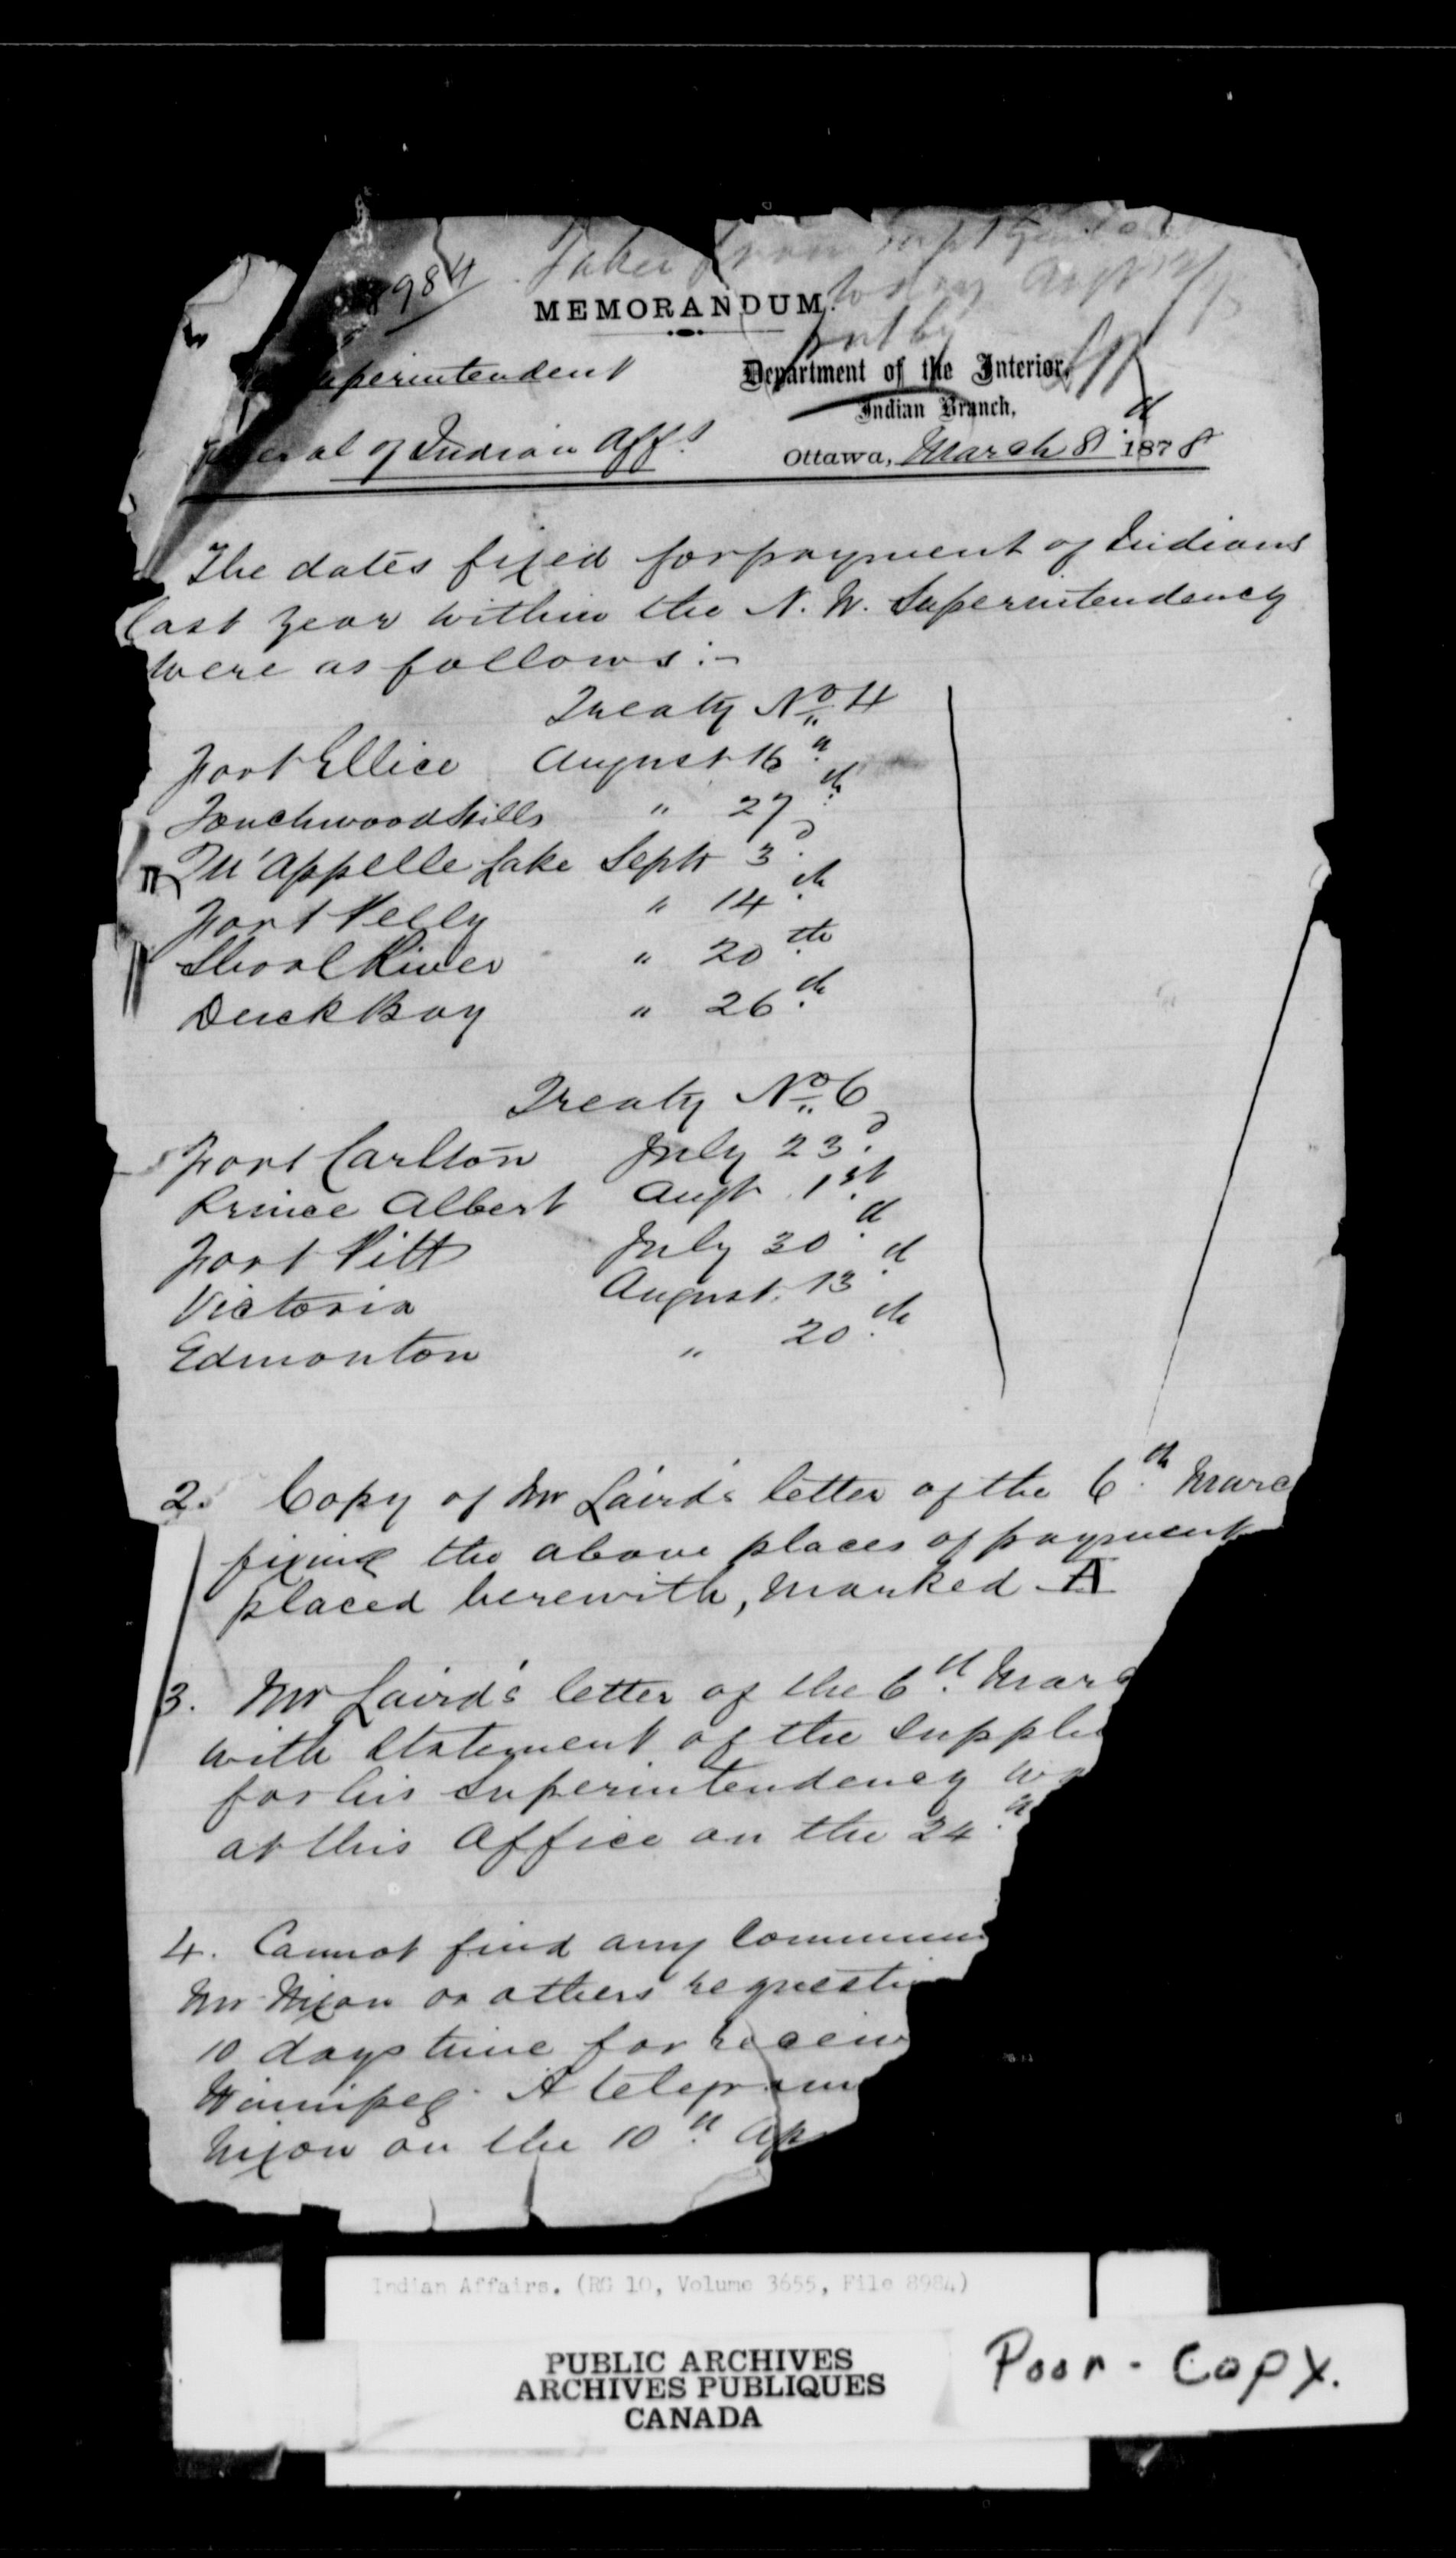 8984
Taken from Supt Genl
today
MEMORANDUM.
put by
perintendent
Department of the Interior,
Indian Branch,
eral of Indian Affs
Ottawa, March 8th 1878
The dates fixed for payment of Indians
last year within the N. W. Superintendency
were as follows :-
Treaty No 4
Fort Ellice August 16th
Touchwood Hills " 27th
Qu'Appelle Lake Septr 3d
Fort Pelly " 14th
Shoal River " 20th
Duck Bay " 26th
Treaty No 6
Fort Carlton July 23d
Prince Albert Augt 1st
Fort Pitt July 30th
Victoria August 13th
Edmonton " 20th
2. Copy of Mr Laird's letter of the 6th Marc
fixing the above places of payment
placed herewith, marked A
3. Mr Laird's letter of the 6th Marc
with Statement of the Supplie
for his Superintendency
at this Office on the 24th
4. Cannot find any Commun
Mr Nixon or others requesti
10 days time for receiv
Winnipeg. A telegram
Nixon on the 10th Ap
Indian Affairs. (RG 10, Volume 3655, File 8984)
PUBLIC ARCHIVES
ARCHIVES PUBLIQUES
CANADA
Poor - Copy.